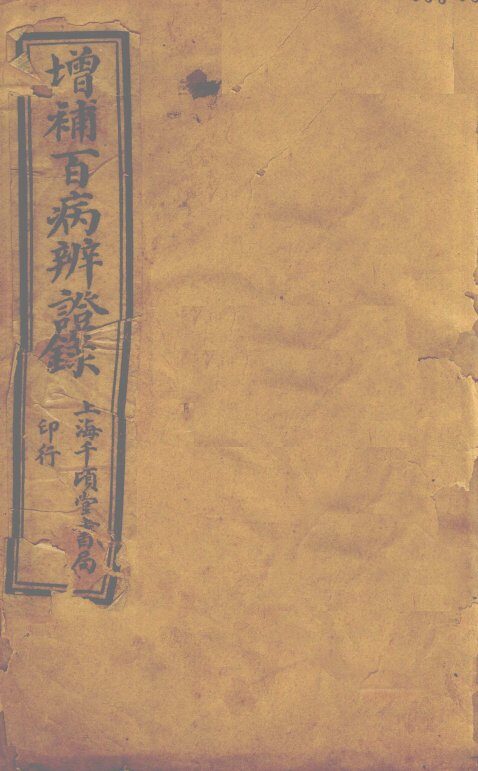 增補百病辨證錄
上海千頃堂書局
印行